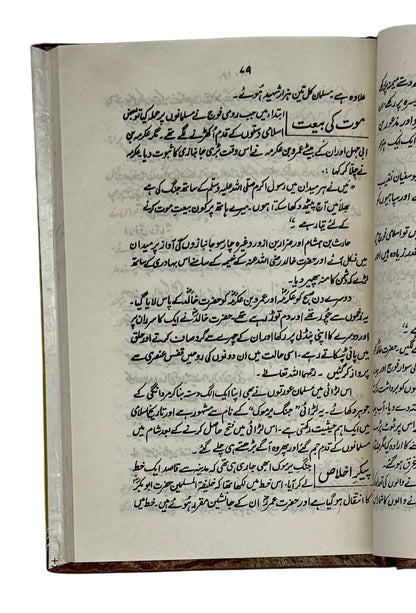 ۷۹
علاوہ ہے۔ مسلمان کل تین ہزار شہید ہوئے۔
موت کی بیعت
ابتداء میں جب رومی فوج نے مسلمانوں پر حملہ کیا تو بعض
اسلامی دستوں کے قدم اکھڑنے لگے تھے مگر عکرمہ بن
ابی جہل اور ان کے بیٹے عمرو بن عکرمہ نے اس وقت بڑی جانبازی کا ثبوت دیا۔ عکرمہ
نے چلا کر کہا:
"میں نے ہر میدان میں رسول اکرم صلی اللہ علیہ وسلم کے ساتھ جنگ کی ہے
بھلا میں آج پیٹھ دکھا سکتا ہوں۔ میرے ہاتھ پر کون بیعت موت کرنے
کے لئے تیار ہے۔"
حارث بن ہشام اور ضرار بن ازور وغیرہ چار سو جانبازوں کی آواز پر میدان
میں نکل آئے اور حضرت خالد رضی اللہ عنہ کے خیمہ کے سامنے اس بہادری کے ساتھ
لڑے کہ دشمن کا منہ پھیر دیا۔
دوسرے دن صبح کو عکرمہؓ اور عمرو بن عکرمہؓ کو حضرت خالدؓ کے پاس لایا گیا۔
یہ زخموں سے چور تھے اور دم توڑ رہے تھے۔ حضرت خالدؓ نے ایک کا سر ران پر
اور دوسرے کا اپنی پنڈلی پر رکھا اور ان کے چہرے سے گرد صاف کرتے اور حلق
میں پانی ٹپکاتے رہے۔ اسی حالت میں ان دونوں کی روح قفس عنصری سے
پرواز کر گئیں۔ رحمہما اللہ تعالیٰ
اس لڑائی میں مسلمان عورتوں نے بھی اپنا ایک الگ دستہ بنا کر مردانگی کے
جوہر دکھائے۔ یہ لڑائی "جنگ یرموک" کے نام سے مشہور ہے اور تاریخ اسلامی
میں ایک اہم حیثیت رکھتی ہے۔ اس لڑائی میں فتح حاصل کرنے کے بعد شام میں
مسلمانوں کے قدم جم گئے اور پھر وہ آگے بڑھتے ہی چلے گئے۔
پیکر اخلاص
جنگ یرموک ابھی جاری ہی تھی کہ مدینہ سے قاصد ایک خط
لے کر آیا۔ اس خط میں لکھا تھا کہ خلیفۃ المسلمین حضرت ابوبکرؓ
کا انتقال ہو گیا ہے اور حضرت عمرؓ ان کے جانشین مقرر ہوئے ہیں۔ خط میں